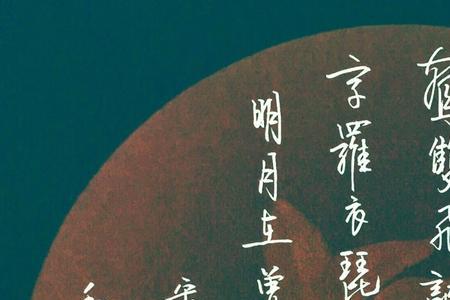 雙飛記
字羅衣琵
明月在曾